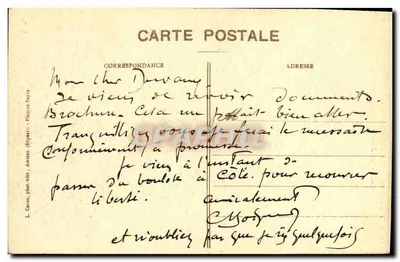 CARTE POSTALE
CORRESPONDANCE
ADRESSE
Mon cher
Je viens de revoir documents.
Brochure. Cela me paraît bien aller.
Tranquillisez vous je ferai le nécessaire
conformément à promesse.
Je viens à l'instant de
passer du boulot à côté pour recouvrer
liberté.
amicalement
et n'oubliez pas que je ris quelquefois